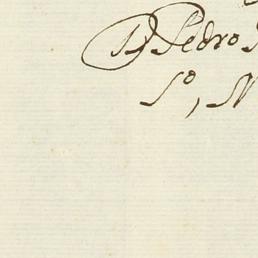 D Pedro
S.º, N